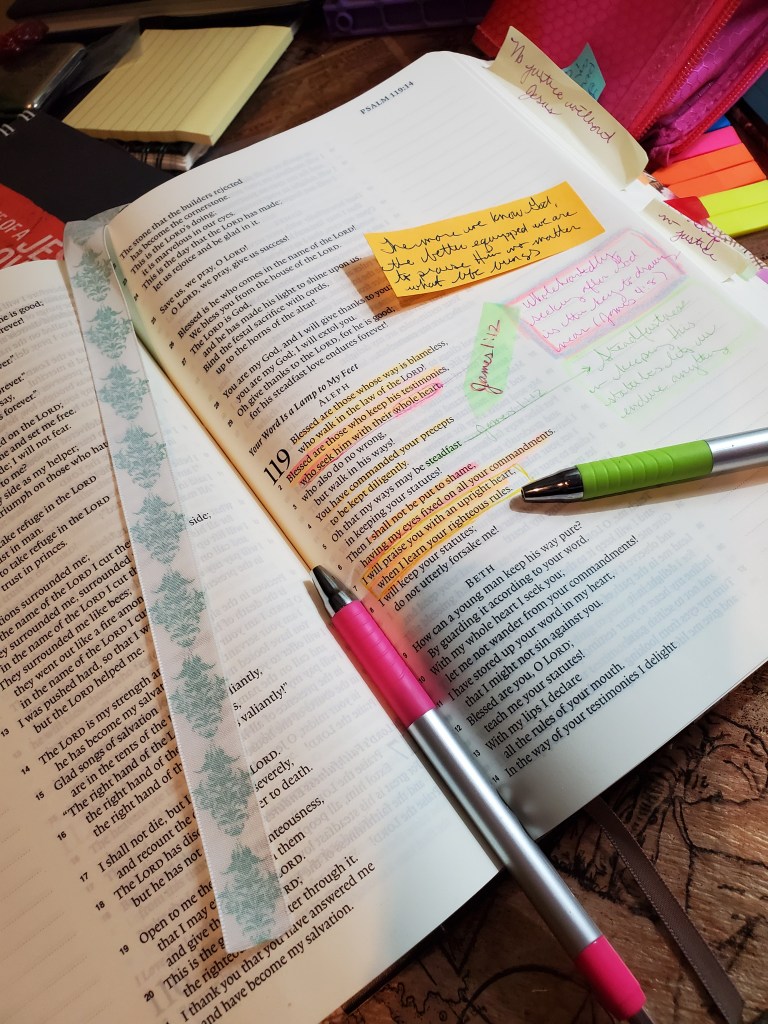 No justice without
Jesus
no
justice
PSALM 119:14
The more we know God,
the better equipped we are
to praise Him no matter
what life brings
Wholeheartedly
seeking after God
near (James 4:8)
James 1:12
Steadfastness
endure anything
James 1:12
The stone that the builders rejected
has become the cornerstone.
This is the LORD's doing;
it is marvelous in our eyes.
This is the day that the LORD has made;
let us rejoice and be glad in it.
Save us, we pray, O LORD!
O LORD, we pray, give us success!
Blessed is he who comes in the name of the LORD!
We bless you from the house of the LORD.
The LORD is God,
and he has made his light to shine upon us.
Bind the festal sacrifice with cords,
up to the horns of the altar!
You are my God, and I will give thanks to you;
you are my God; I will extol you.
Oh give thanks to the LORD, for he is good;
for his steadfast love endures forever!
Your Word Is a Lamp to My Feet
ALEPH
119 Blessed are those whose way is blameless,
who walk in the law of the LORD!
2 Blessed are those who keep his testimonies,
who seek him with their whole heart,
3 who also do no wrong,
but walk in his ways!
4 You have commanded your precepts
to be kept diligently.
5 Oh that my ways may be steadfast
in keeping your statutes!
6 Then I shall not be put to shame,
having my eyes fixed on all your commandments.
7 I will praise you with an upright heart,
when I learn your righteous rules.
8 I will keep your statutes;
do not utterly forsake me!
BETH
9 How can a young man keep his way pure?
By guarding it according to your word.
10 With my whole heart I seek you;
let me not wander from your commandments!
11 I have stored up your word in my heart,
that I might not sin against you.
12 Blessed are you, O LORD;
teach me your statutes!
13 With my lips I declare
all the rules of your mouth.
14 In the way of your testimonies I delight
is good;
forever!
say,
forever."
on the LORD;
me and set me free.
side; I will not fear.
side as my helper;
triumph on those who hat
take refuge in the LORD
in man.
to take refuge in the LORD
trust in princes.
surrounded me;
the name of the LORD I cut
surrounded me, surrounded
in the name of the LORD I cut
They surrounded me like bees;
they went out like a fire among
in the name of the LORD I cut
13 I was pushed hard, so that I w
but the LORD helped me.
side;
14 The LORD is my strength a
he has become my salva
15 Glad songs of salvation
are in the tents of the
"The right hand of the
valiantly,
16 the right hand of the
the right hand of
valiantly!"
17 I shall not die, but I
and recount the
LORD.
18 The LORD has disc
severely,
but he has not
er to death.
19 Open to me the
teousness,
that I may
them
and give th
LORD.
20 This is the g
LORD;
the righteous
ter through it.
I thank you that you have answered me
and have become my salvation.